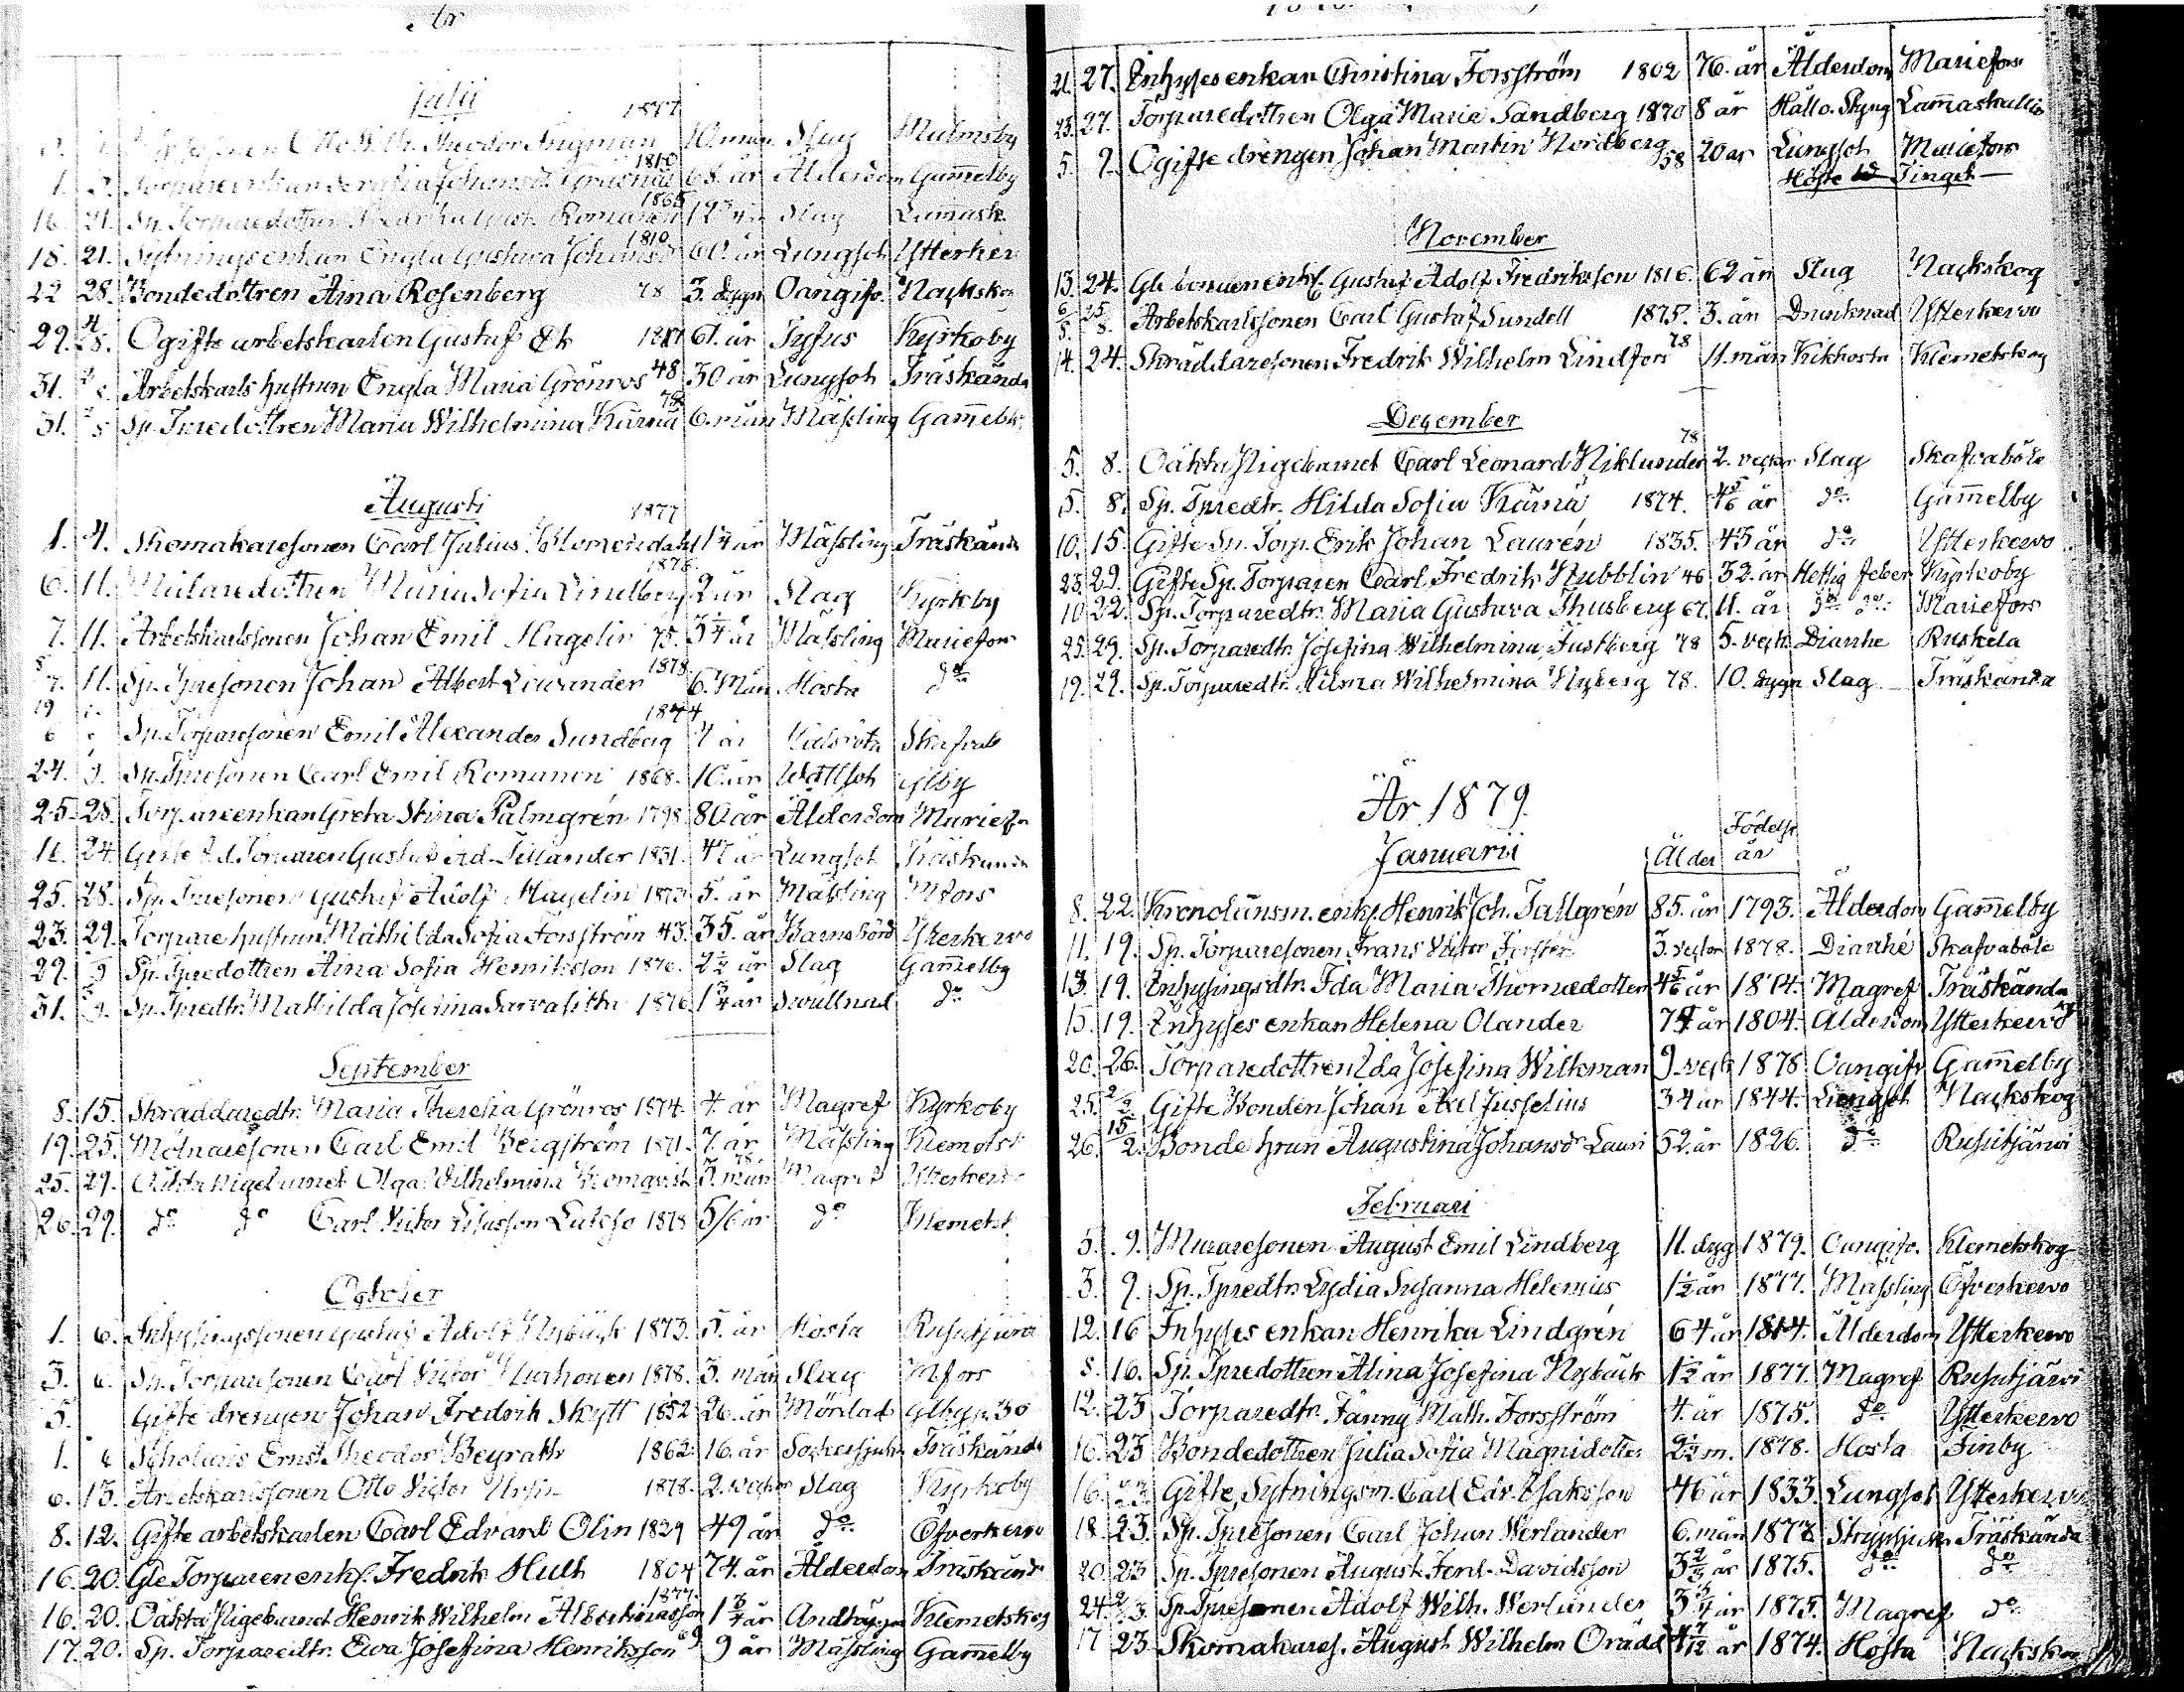 År
Julii
Otto Wilh. Theodor Ingman 1877 10 mån Slag Malmsby
1. Torpareenkan Serafia Johansdr Grasman 1810 68. år Ålderdom Gam̄elby
16. 21. Sp. Torparedottren Fredrika Gust. Romanen 1865 Slag Lam̄ask.
18. 21. Sytningsenkan Engla Gustava Johansd. 1810 Lungsot Ytterker
22 28. Bondedottren Aina Rosenberg 78 3. dygn Oangifv. Nackskog
29. 4/8. Ogifte arbetskarlen Gustaf Ek 1817 61. år Tyfus Kyrkoby
31. 8. Arbetskarls hustrun Engla Maria Grönros 48 30 år Lungsot Träskända
31. 8 Sp. Tpredottren Maria Wilhelmina Kärnä 78 6. mån Mässling Gam̄elby
Augusti
1. 4. Skomakaresonen Carl Julius Blomendahl 1877 1¼ år Mässling Träskända
6. 11. Målaredottren Maria Sofia Lindberg 1876 2 år Slag Kyrkby
7. 11. Arbetskarlssonen Johan Emil Hagelin 75. 3¼ år Mässling Mariefors
7. 11. Sp. Tpresonen Johan Albert Lewander 1878 6. Mån. Hosta do
19 6 Sp. Torparesonen Emil Alexander Sundberg 1874 4 år Skafvab
24. 9. Sp. Tpresonen Carl Emil Romanen 1868. 10. år Wattsot Glby
25. 28. Torpareenkan Greta Stina Palmgrén 1798 80 år Ålderdom Mariefo
16. 24. Gifte Sp. Torparen Gustaf Ad. Tillander 1831. 47 år Lungsot Träskända
25. 28. Sp. Tpresonen Gustaf Adolf Hagelin 1873 5. år Mässling Mfors
23. 29. Torpare hustrun Mathilda Sofia Forsström 43. 35. år Barnsbörd Ytterkerwo
29. 9 Sp. Tpredottren Aina Sofia Henriksson 1876. 2½ år Slag Gam̄elby
31. 9. Sp. Tpredtr. Mathilda Josefina Sarvasitha 1876 1¾ år Svullnad do
September
8. 15. Skräddaredtr. Maria Theresia Grönros 1874. 4. år Magref Kyrkoby
19. 25. Mölnaresonen Carl Emil Bergström 1871. 7. år Mässling Klemetsk
25. 29. Oäkta Pigebarnet Olga Wilhelmina Blomqvist 78. 3. mån Magref Ytterkerv
26. 29. do do Carl Victor Luteso 1878 5/6 år do Klemetsk
October
1. 6. Inhysingssonen Gustaf Adolf Nybäck 1873. 5. år Hosta Rusutjärvi
3. 6. Sp. Torparesonen Carl Victor Murhonen 1878. 3. mån Slag Mfors
5. Gifte drengen Johan Fredrik Skytt 1852 26. år Mördad Glby p. 30
1. 6 Scholaris Ernst Theodor Beyrath 1862. 16. år Sockersjuka Träskända
6. 13. Arbetskarlssonen Otto Victor Ursin 1878. 2. veckor Slag Kyrkoby
8. 12. Gifte arbetskarlen Carl Edvard Olin 1829 49 år do Öfverkerwo
16. 20. Gle Torparen enkl. Fredrik Hult 1804 74. år Ålderdom Träskända
16. 20. Oäkta Pigebarnet Henrik Wilhelm Albertinasson 1877 1¾ år Andtäppa Klemetskog
17. 20. Sp. Torparedtr. Ewa Josefina Henriksson 69 9 år Mässling Gam̄elby
21. 27. Inhysesenkan Christina Forsström 1802 76. år Ålderdom Mariefors
23. 27. Torparedottren Olga Maria Sandberg 1870 8 år Håll o. Styng Lam̄askulla
5. 9. Ogifte drengen Johan Martin Nordberg 58 20 år Lungsot Mariefors
Höste Tinget
November
13. 24. Gle bonden enkl. Gustaf Adolf Fredriksson 1816. 62 år Slag Nackskog
6/5 25/8. Arbetskarlssonen Carl Gustaf Sundell 1875. 3. år Drunknad Ytterkerwo
14. 24. Skräddaresonen Fredrik Wilhelm Lindfors 78 11. mån Kikhosta Klemetskog
December
5. 8. Oäkta Pigebarnet Carl Leonard Niklander 78 2. veckor Slag Skafvaböle
5. 8. Sp. Tpredtr. Hilda Sofia Kärnä 1874. 4 5/6 år do Gam̄elby
10. 15. Gifte Sp. Torp. Erik Johan Laurén 1835. 43 år do Ytterkerwo
23. 29. Gifte Sp. Torparen Carl Fredrik Nubblin 46 32. år Hettig feber Kyrkoby
10. 22. Sp. Torparedtr. Maria Gustava Thusberg 67. 11. år do do Mariefors
25. 29. Sp. Torparedtr. Josefina Wilhelmina Justberg 78 5. veck. Diarrhe Ruskela
19. 29. Sp. Torparedtr. Hilma Wilhelmina Nyberg 78. 10. dygn Slag Träskända
År 1879.
Januarii Ålder Födelse år
8. 22. Kronolänsm. enkl. Henrik Joh. Tallgrén 85. år 1793. Ålderdom Gam̄elby
11. 19. Sp. Torparesonen Frans Victor Forstén 3. veckor 1878. Diarrhé Skafvaböle
13. 19. Inhysingsdtr. Ida Maria Thomædotter 4 5/6 år 1874. Magref Träskända
15. 19. Inhyses enkan Helena Olander 74 år 1804. Ålderdom Ytterkerwo
20. 26. Torparedottren Ida Josefina Wilkman 9. veck 1878 Oangifv Gam̄elby
25. 2/2 Gifte Bonden Johan Axel Jusselius 34 år 1844. Lungsot Nackskog
26. 15/2. Bonde hrun Augustina Johansdr Lauri 52. år 1826. do Rusutjärvi
Februari
5. 9. Muraresonen August Emil Lindberg 11. dyg 1879. Oangifv. Klemetskog
3. 9. Sp. Tpredtr. Lydia Susanna Helenius 1½ år 1877. Mässling Öfverkerwo
12. 16 Inhyses enkan Henrika Lindgrén 64 år 1814. Ålderdom Ytterkerwo
8. 16. Sp. Tpredottren Alina Josefina Nybäck 1½ år 1877. Magref Rusutjärvi
12. 23 Torparedtr. Fanny Math. Forsström 4. år 1875. do Ytterkerwo
16. 23 Bondedottren Julia Sofia Magnidotter 2½ m. 1878. Hosta Finby
16. 23 Gifte Sytningsm. Carl Edv. Isaksson 46 år 1833. Lungsot Ytterkerwo
18. 23. Sp. Tpresonen Carl Johan Werlander 6. mån 1878. Strypsjuka Träskända
20. 23 Sp. Tpresonen August Ferd. Davidsson 3¾ år 1875. do do
24. 2/3. Sp. Tpresonen Adolf Wilh. Werlander 3¾ år 1875. Magref do
17 23 Skomakares. August Wilhelm Orädd 4 7/12 år 1874. Hosta Nackskog